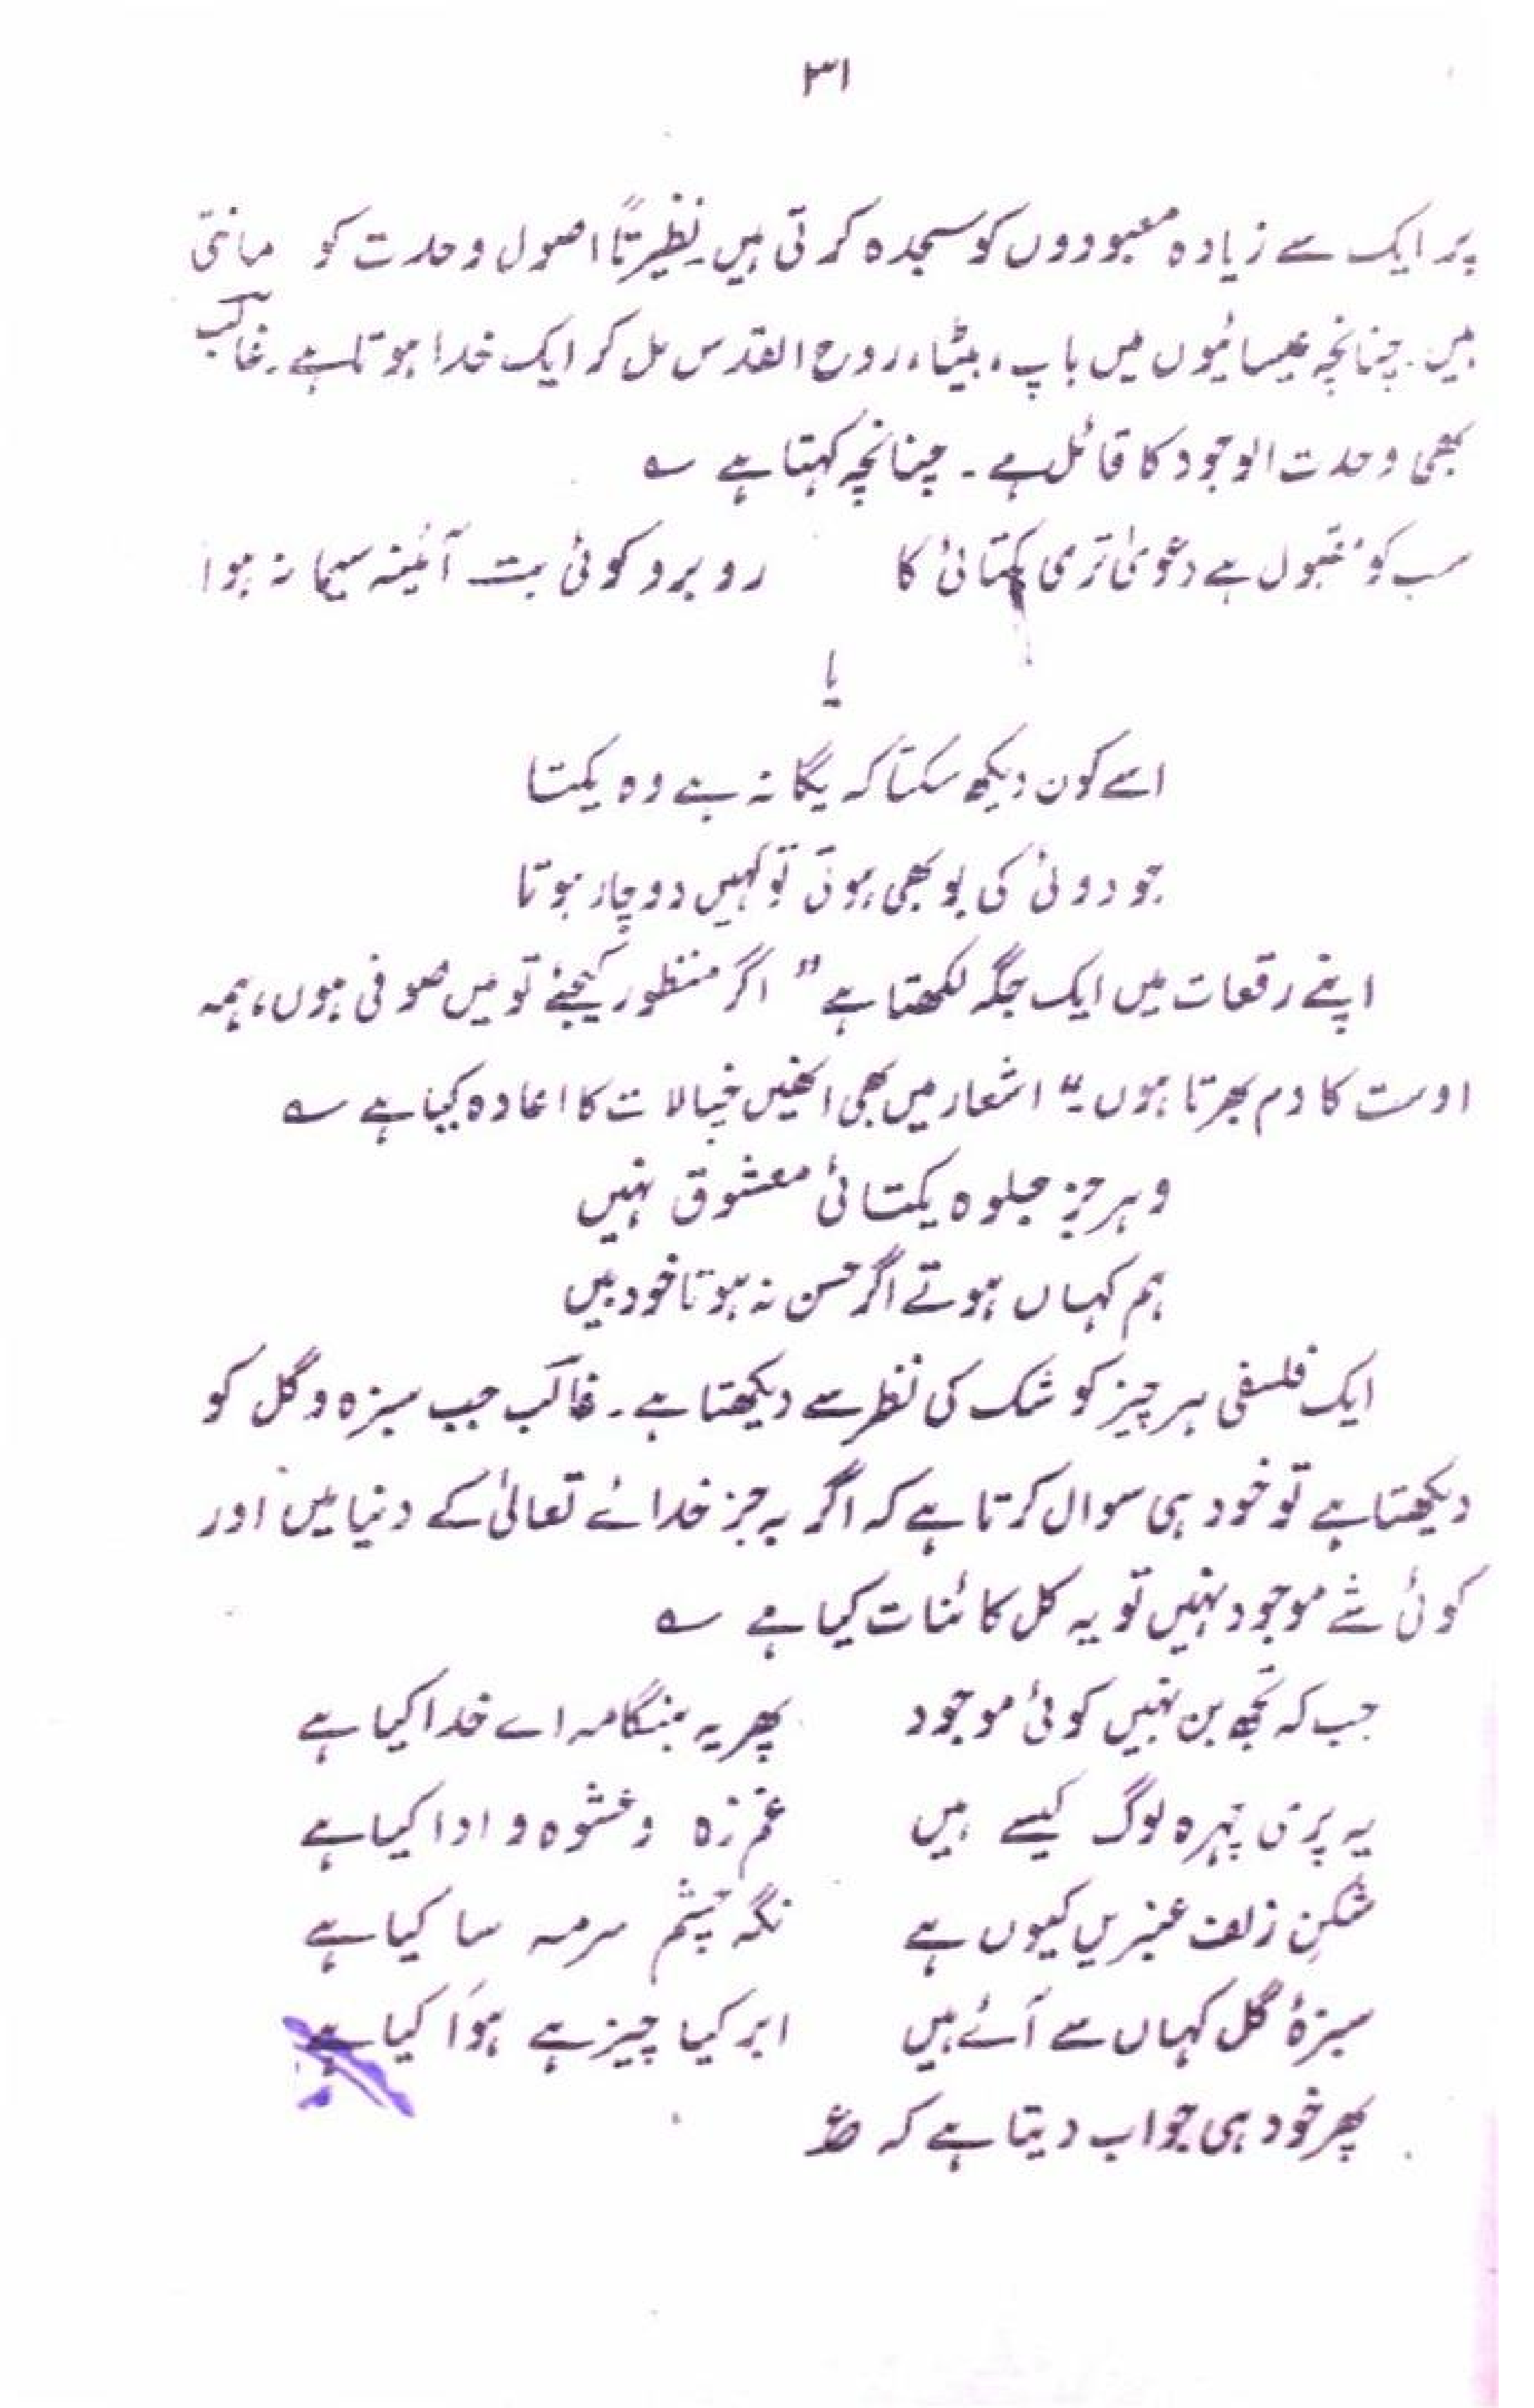 ۳۱
پر ایک سے زیادہ معبودوں کو سجدہ کرتی ہیں۔ نظیرتاً اصول وحدت کو مانتی
ہیں۔ چنانچہ عیسائیوں میں باپ، بیٹا، روح القدس مل کر ایک خدا ہوتا ہے۔ غالبؔ
بھی وحدت الوجود کا قائل ہے۔ چنانچہ کہتا ہے ؎
سب کو مقبول ہے دعویٰ تری یکتائی کا روبرو کوئی بت آئینہ سیما نہ ہوا
یا
اسے کون دیکھ سکتا کہ یگانہ ہے وہ یکتا
جو دوئی کی بو بھی ہوتی تو کہیں دوچار ہوتا
اپنے رقعات میں ایک جگہ لکھتا ہے ”اگر منظور کیجئے تو میں صوفی ہوں، ہمہ
اوست کا دم بھرتا ہوں۔“ اشعار میں بھی انھیں خیالات کا اعادہ کیا ہے ؎
دہر جز جلوہ یکتائی معشوق نہیں
ہم کہاں ہوتے اگر حسن نہ ہوتا خودبیں
ایک فلسفی ہر چیز کو شک کی نظر سے دیکھتا ہے۔ غالبؔ جب سبزہ و گل کو
دیکھتا ہے تو خود ہی سوال کرتا ہے کہ اگر بہ جز خدائے تعالیٰ کے دنیا میں اور
کوئی شے موجود نہیں تو یہ کل کائنات کیا ہے ؎
جب کہ تجھ بن نہیں کوئی موجود پھر یہ ہنگامہ اے خدا کیا ہے
یہ پری چہرہ لوگ کیسے ہیں غمزہ و عشوہ و ادا کیا ہے
شکنِ زلف عنبریں کیوں ہے نگہ چشم سرمہ سا کیا ہے
سبزۂ گل کہاں سے آئے ہیں ابر کیا چیز ہے ہوا کیا ہے
پھر خود ہی جواب دیتا ہے کہ ؏